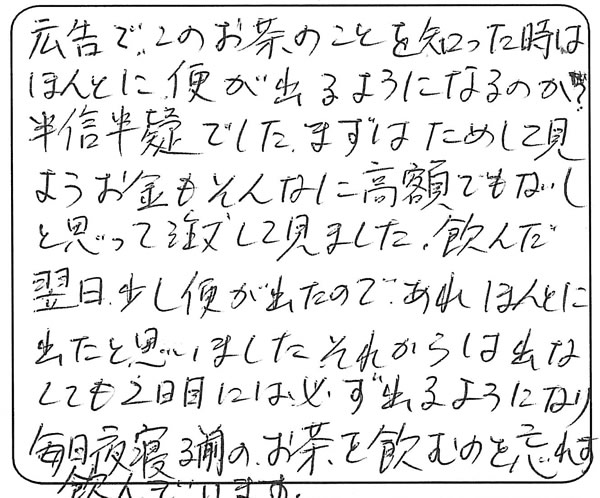 広告で、このお茶のことを知った時は
ほんとに便が出るようになるのか?
半信半疑でした。まずはためして見
ようお金もそんなに高額でもないし
と思って注文して見ました。飲んだ
翌日、少し便が出たので、あれほんとに
出たと思いましたそれからは出な
しても2日目には必ず出るようになり
毎日夜寝る前の、お茶を飲むのを忘れず
飲んでいます。